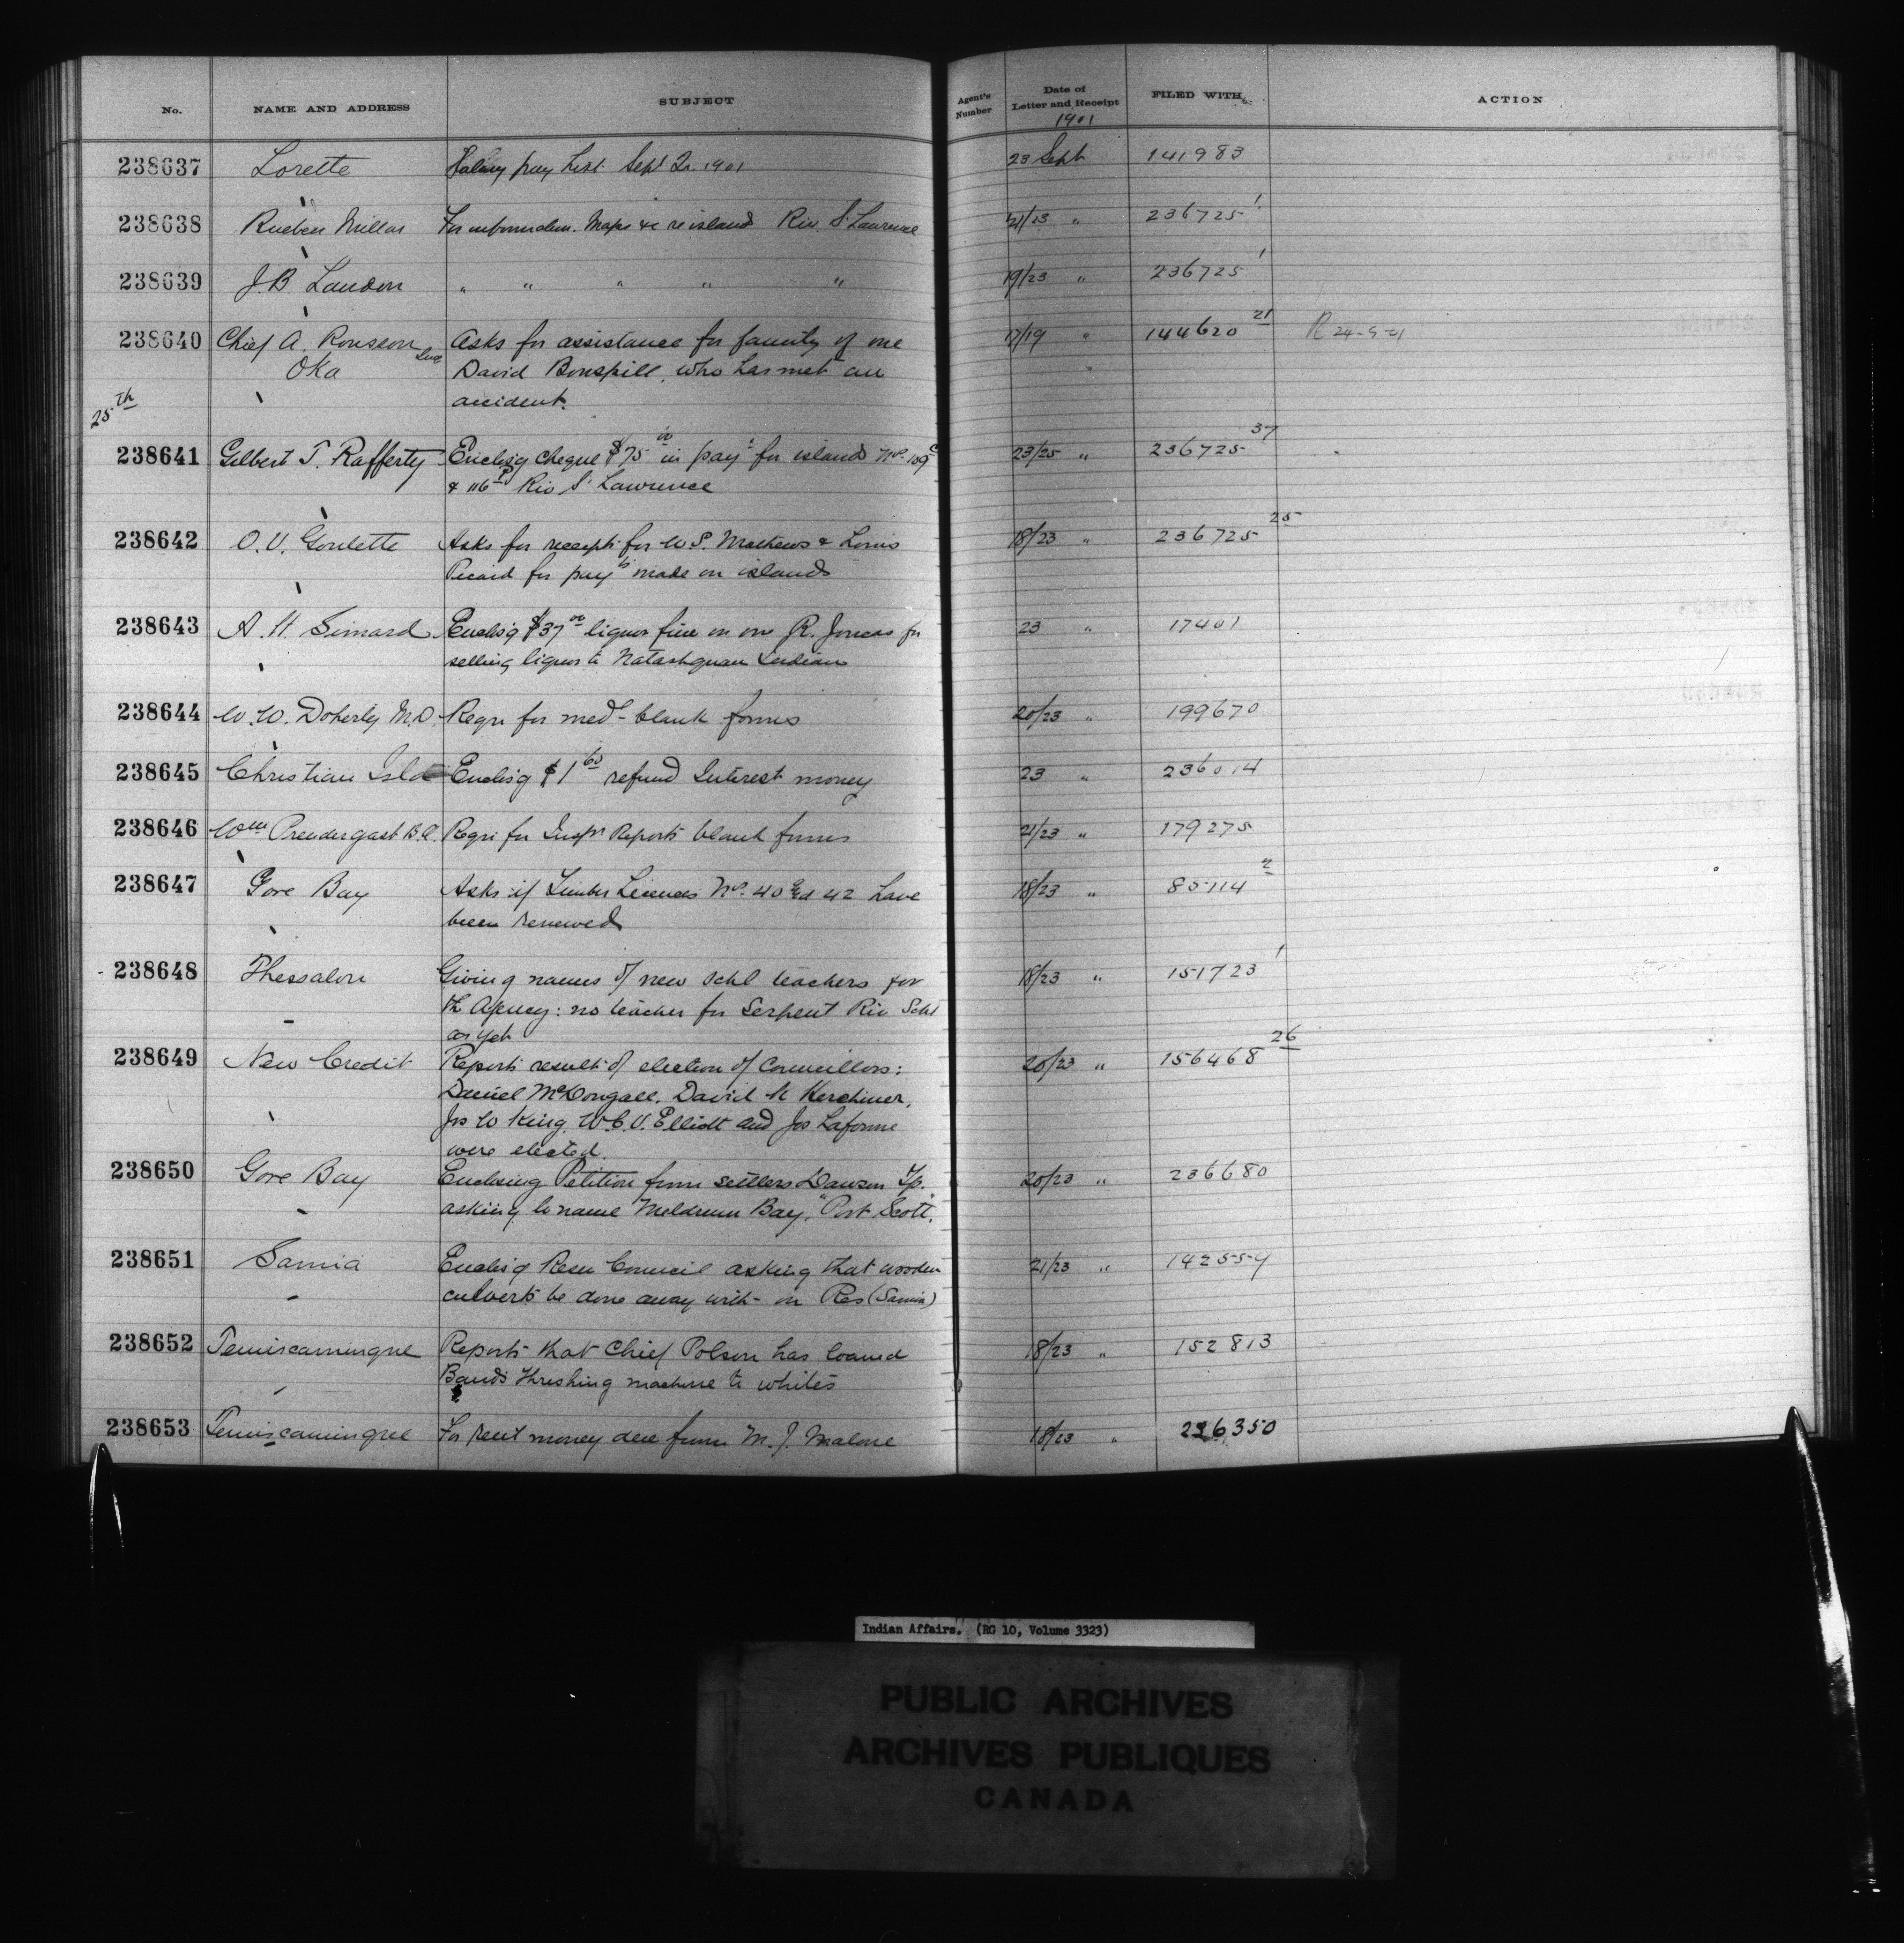 No. NAME AND ADDRESS SUBJECT Agent's Number Date of Letter and Receipt FILED WITH ACTION
1901
238637 Lorette Salary pay list Sept Qr. 1901 23 Sept 141983
238638 Rueben Millar For information. Maps &c re island Riv. St Lawrence 21/23 " 236725 1
238639 J. B. Landon " " " " " 19/23 " 236725 1
238640 Chief A. Rousson Asks for assistance for family of one 17/19 " 144620 21 R 24-9-01
Oka David Bonspill, who has met an "
accident.
25th
238641 Gilbert T. Rafferty Enclos'g cheque $75 00 in pay't for islands No. 109 C 23/25 " 236725 37
& 116 P Riv St Lawrence
238642 O. V. Goulette Asks for receipts for W S. Mathews & Louis 18/23 " 236725 25
Picard for pay'ts made on islands
238643 A. H. Simard Enclos'g $37 00 liquor fine on one R. Joncas for 23 " 17401
selling liquor to Natashquan Indian
238644 W. W. Doherty M.D. Requ for med'l blank forms 20/23 " 199670
238645 Christian Isld Enclos'g $1 60 refund Interest money 23 " 236014
238646 Wm Prendergast B.C. Requ for Insp'n Reports blank forms 21/23 " 179275
238647 Gore Bay Asks if Timber Licences Nos. 40 and 42 have 18/23 " 85114 2
been renewed
238648 Thessalon Giving names of new Schl teachers for 18/23 " 151723 1
th Agency: no teacher for Serpent Riv Schl
as yet
238649 New Credit Reports result of election of Councillors: 20/23 " 156468 26
Daniel McDougall. David K Kerchmer,
Jos W King. W. C. V. Elliott and Jos Laforme
were elected.
238650 Gore Bay Enclosing Petition from settlers Dawson Tp. 20/23 " 236680
asking to name Meldrum Bay, "Port Scott".
238651 Sarnia Enclos'g Resn Council asking that wooden 21/23 " 142559
culverts be done away with on Res (Sarnia)
238652 Temiscamingue Reports that Chief Polson has loaned 18/23 " 152813
Band's threshing machine to whites
238653 Temiscamingue For rent money due from M. J. Malone 18/23 " 226350
Indian Affairs. (RG 10, Volume 3323)
PUBLIC ARCHIVES
ARCHIVES PUBLIQUES
CANADA